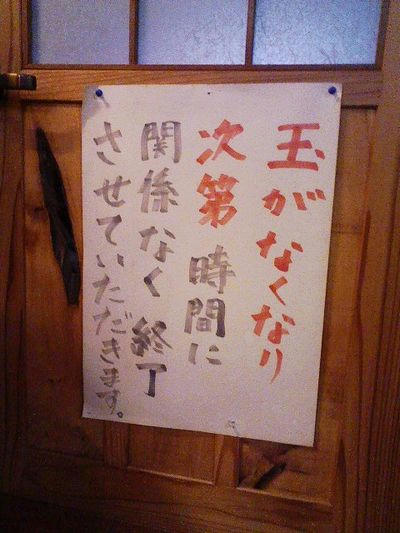 玉がなくなり
次第 時間に
関係なく 終了
させていただきます。